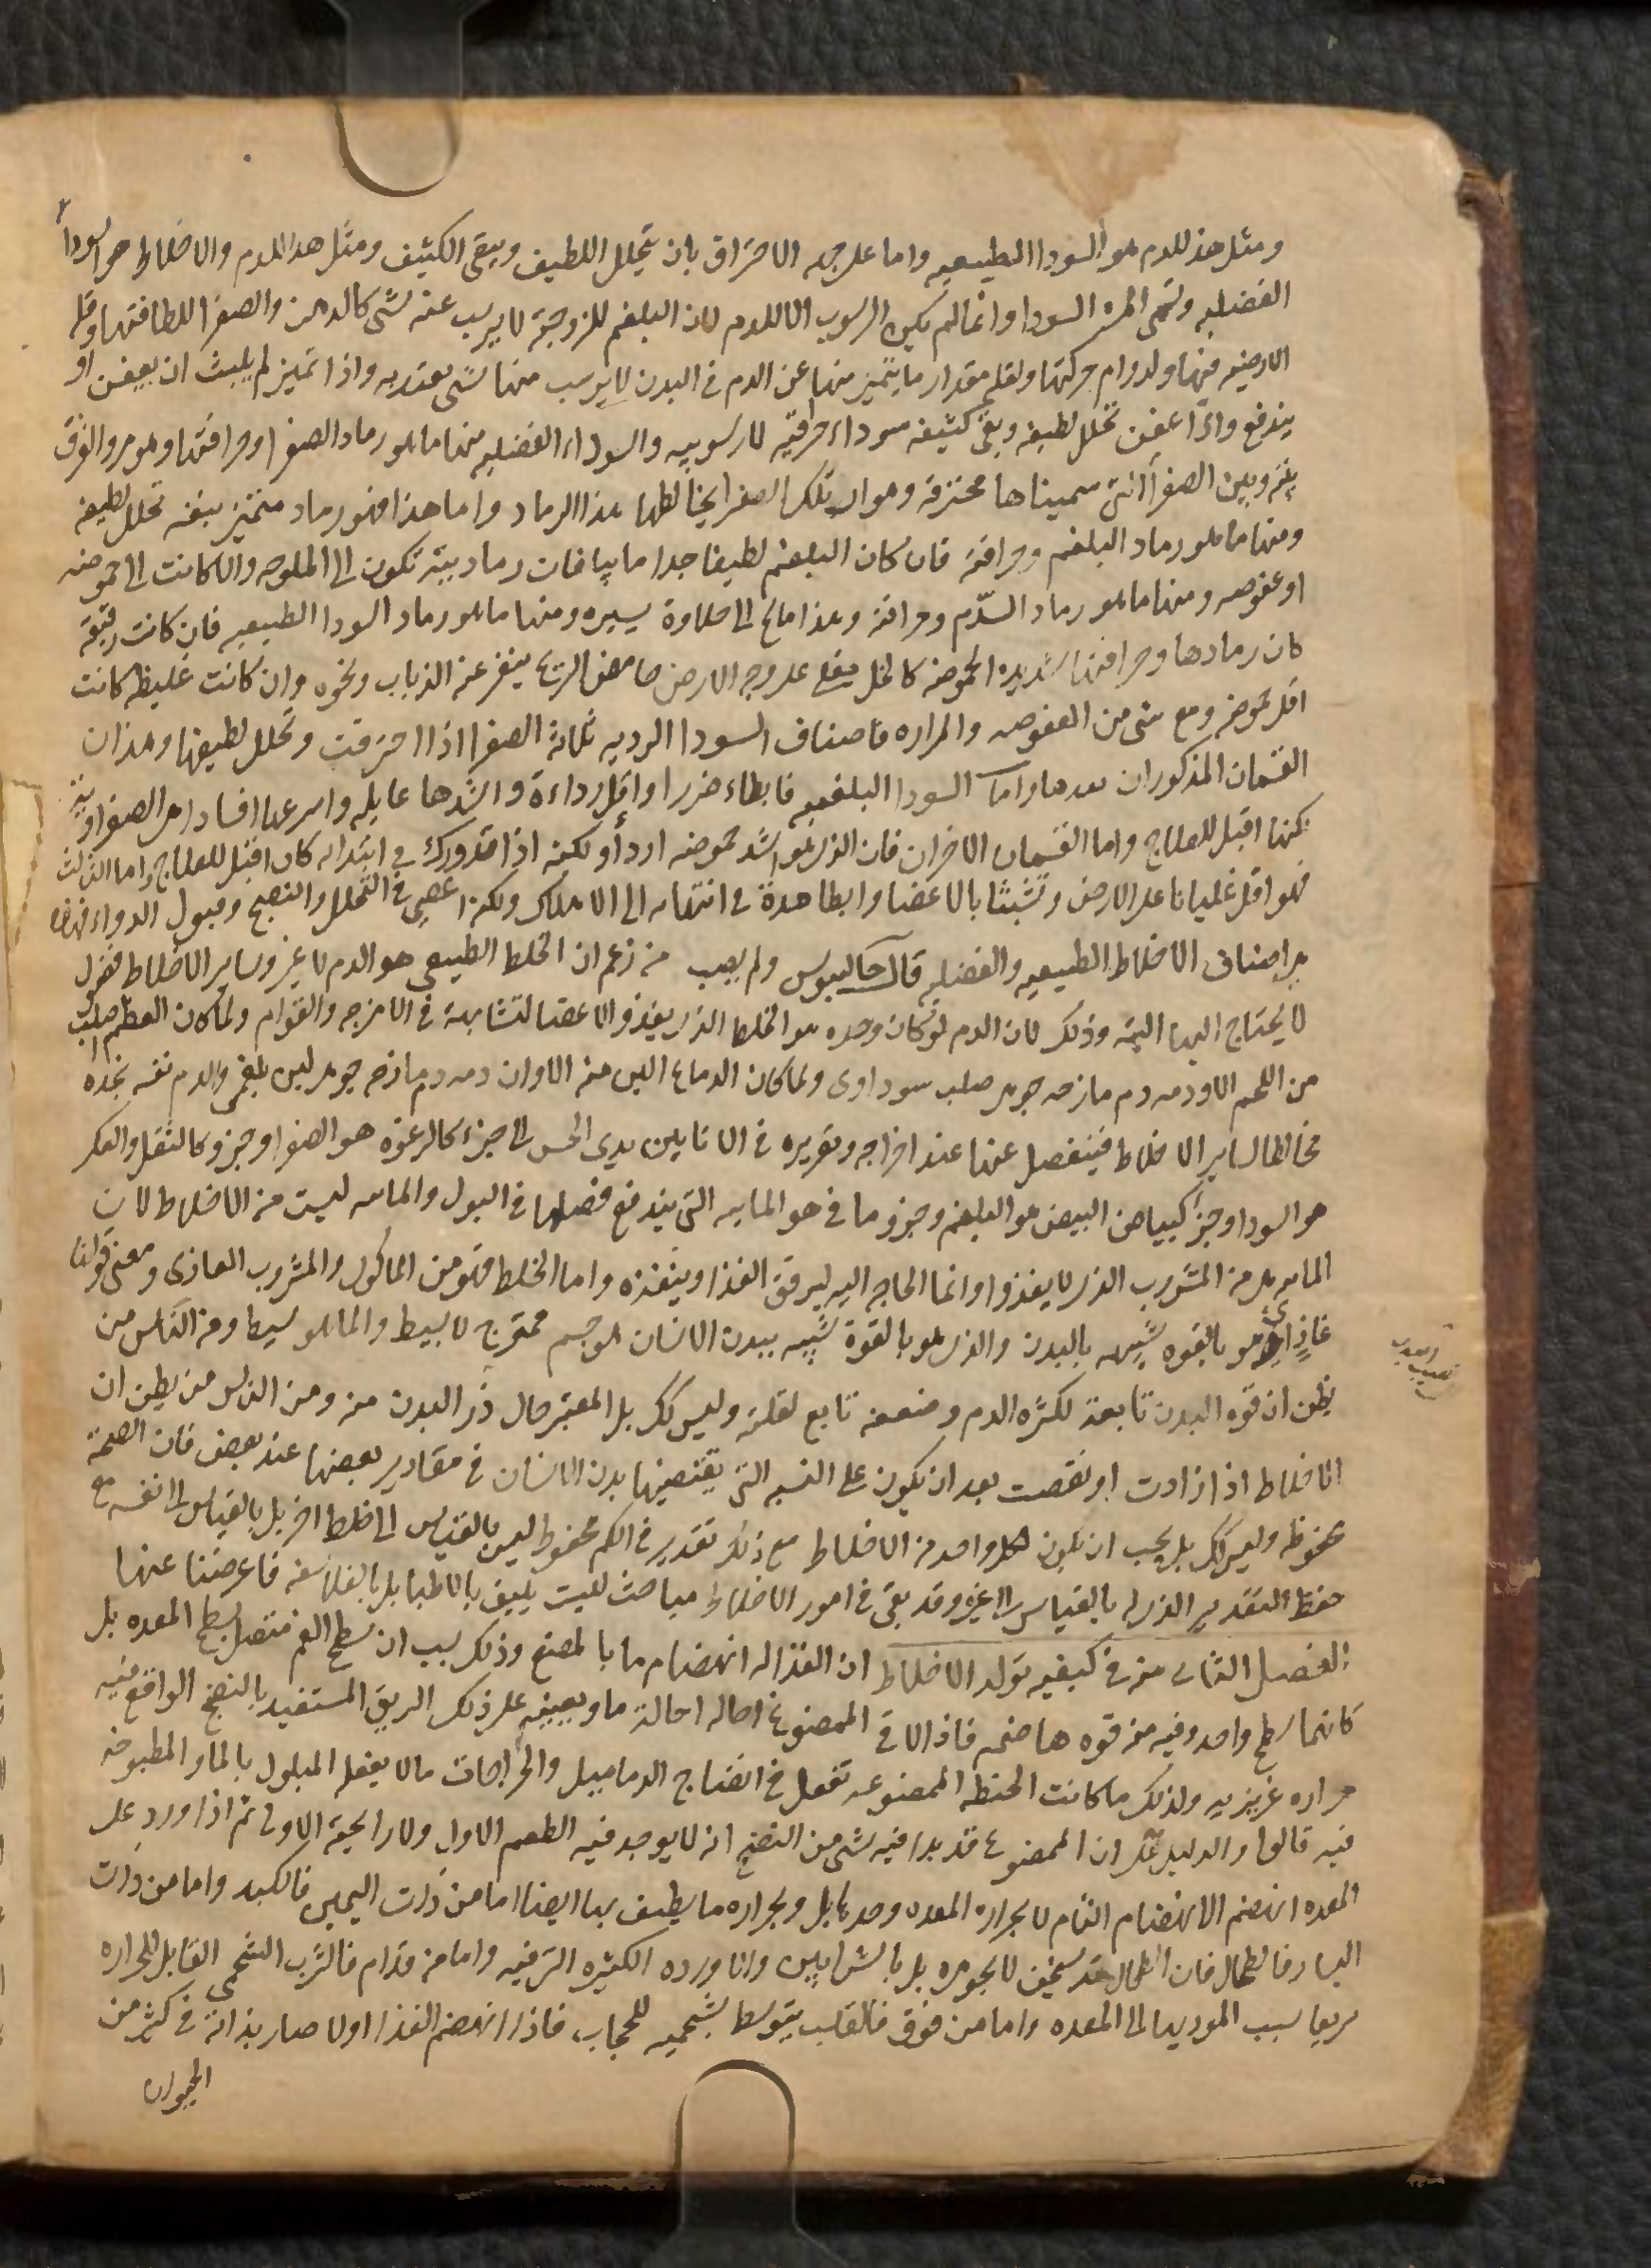 ومثل هذا للدم هو السودا الطبيعيه واما على جهه الاحتراق بان يتحلل اللطيف ويبقى الكثيف ومثل هذا للدم والاخلاط هو السوداء
الفضليه وتسمى المره السودا وانما لم يكن الرسوب الا للدم لان البلغم للزوجته لا يرسب عنه شى كالدهن والصفرا للطافتها وقله
الارضيه فيها ولدوام حركتها ولقله مقدار ما يتميز منها عن الدم فى البدن لا يرسب منها شى يعتد به واذا تميز لم يلبث ان يعفن او
يندفع واذا عفن تحلل لطيفه وبقى كثيفه سوداء حراقيه لا رسوبيه والسوداء الفضليه منها ما هو رماد الصفرا وحراقتها وهو مر والفرق
بينه وبين الصفرا التى سميناها محترقه هو ان تلك الصفرا يخالطها هذا الرماد واما هذا فهو رماد متميز بنفسه تحلل لطيفه
ومنها ما هو رماد البلغم وحراقته فان كان البلغم لطيفا جدا ماييا فان رماديته تكون الى الملوحه والا كانت الى حموضه
او عفوصه ومنها ما هو رماد الدم وحراقته وهذا مالح الى حلاوة يسيره ومنها ما هو رماد السودا الطبيعيه فان كانت رقيقه
كان رمادها وحراقتها شديده الحموضه كالخل يغلى على وجه الارض حامض الريح ينفر عنه الذباب ونحوه وان كانت غليظه كانت
اقل حموضه ومع شى من العفوصه والمراره فاصناف السودا الرديه ثلاثة الصفرا اذا احترقت وتحلل لطيفها وهذان
القسمان المذكوران بعدها واما السودا البلغميه فابطاء ضررا واقل رداءة واشدها غايله واسرعها افسادا هى الصفراويه
لكنها اقبل للعلاج واما القسمان الاخران فان الذى هو اشد حموضه اردأ ولكنه اذا تدورك فى ابتدايه كان اقبل للعلاج واما الثالث
فهو اقل غليانا على الارض وتشبثا بالاعضا وابطا مدة فى انتهايه الى الاهلاك ولكنه اعصى فى التحلل والنضج وقبول الدواء فهذه
هى اصناف الاخلاط الطبيعيه والفضليه قال جالينوس ولم يصب من زعم ان الخلط الطبيعى هو الدم لا غير وساير الاخلاط فضول
لا يحتاج اليها البته وذلك لان الدم لو كان وحده هو الخلط الذى يغذو الاعضا لتشابهة فى الامزجه والقوام ولما كان العظم اصلب
من اللحم الا ودمه دم مازجه جوهر صلب سوداوى ولما كان الدماغ الين منه الا وان دمه دم مازجه جوهر لين بلغمى والدم نفسه نجده
مخالطا لساير الاخلاط فينفصل عنها عند اخراجه وتقريره فى الانا بين يدى الحس الى جزء كالرغوه هو الصفرا وجزو كالثفل والعكر
هو السودا وجزأ كبياض البيض هو البلغم وجزو مائى هو المائيه التى يندفع فضلها فى البول والمائيه ليست من الاخلاط لان
المائيه هى من المشروب الذى لا يغذوا وانما الحاجه اليه ليرقق الغذا وينفذه واما الخلط فهو من الماكول والمشروب الغاذى ومعنى قولنا
غاذٍ اى هو بالقوه شبيه بالبدن والذى هو بالقوة شبيه ببدن الانسان هو جسم ممتزج لا بسيط والماء هو بسيط ومن الناس من
يظن ان قوه البدن تابعة لكثره الدم وضعفه تابع لقلته وليس كك بل المعتبر حال ذر البدن منه ومن الناس من يظن ان
الاخلاط اذا زادت او نقصت بعد ان يكون على النسبه التى يقتضيها بدن الانسان فى مقادير بعضها عند بعض فان الصحة
محفوظه وليس كك بل يجب ان يكون لكل واحد من الاخلاط مع ذلك تقدير فى الكم محفوظ ليس بالقياس الى خلط اخر بل بالقياس الى نفسه مع
حفظ التقدير الذى له بالقياس الى غيره وقد بقى فى امور الاخلاط مباحث ليست تليق بالاطبا بل بالفلاسفه فاعرضنا عنها
الفصل الثانى منه فى كيفيه تولد الاخلاط ان الغذا له انهضام ما بالمضغ وذلك بسبب ان سطح الفم متصل بسطح المعده بل
كانهما سطح واحد وفيه منه قوه هاضمه فاذا لاقى الممضوغ احاله احالة ما ويعينه على ذلك الريق المستفيد بالنضج الواقع فيه
حراره غريزيه ولذلك ما كانت الحنطه الممضوغه تفعل فى انضاج الدماميل والخراجات مالا يفعله المبلول بالماء والمطبوخه
فيه قالوا والدليل على ان الممضوغ قد بدا فيه شى من النضج انه لا يوجد فيه الطعم الاول ولا رايحته الاولى ثم اذا ورد على
المعده انهضم الانهضام التام لا بحراره المعده وحدها بل وبحراره ما يطيف بها ايضا اما من ذات اليمين فالكبد واما من ذات
اليسار فالطحال فان الطحال قد يسخن لا بجوهره بل بالشرايين والاورده الكثيره التى فيه واما من قدام فالثرب الشحمى القابل للحراره
سريعا بسبب الموديها الى المعده واما من فوق فالقلب بتوسط تسخينه للحجاب فاذا انهضم الغذا اولا صار بذاته فى كثير من
الحيوان